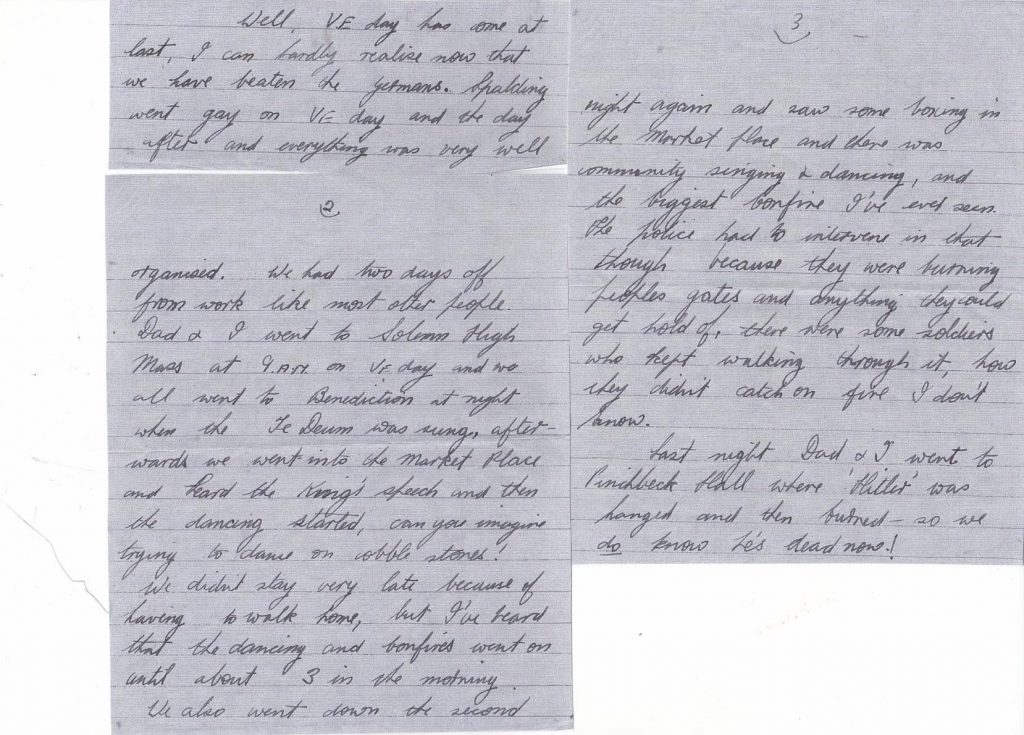 Well, V.E day has come at
last, I can hardly realise now that
we have beaten the germans. Spalding
went gay on VE day and the day
after and everything was very well
2
organised. We had two days off
from work like most other people.
Dad & I went to Solemn High
Mass at 9.A.M. on VE day and we
all went to Benediction at night
when the Te Deum was sung, after-
wards we went into the Market Place
and heard the King's speech and then
the dancing started, can you imagine
trying to dance on cobble stones!
We didn't stay very late because of
having to walk home, but I've heard
that the dancing and bonfires went on
until about 3 in the morning.
We also went down the second
3
night again and saw some boxing in
the Market place and there was
community singing & dancing, and
the biggest bonfire I've ever seen.
The police had to intervene in that
though because they were burning
peoples gates and anything they could
get hold of, there were some soldiers
who kept walking through it, how
they didn't catch on fire I don't
know.
Last night Dad & I went to
Pinchbeck Hall where 'Hitler' was
hanged and then burned - so we
do know he's dead now!